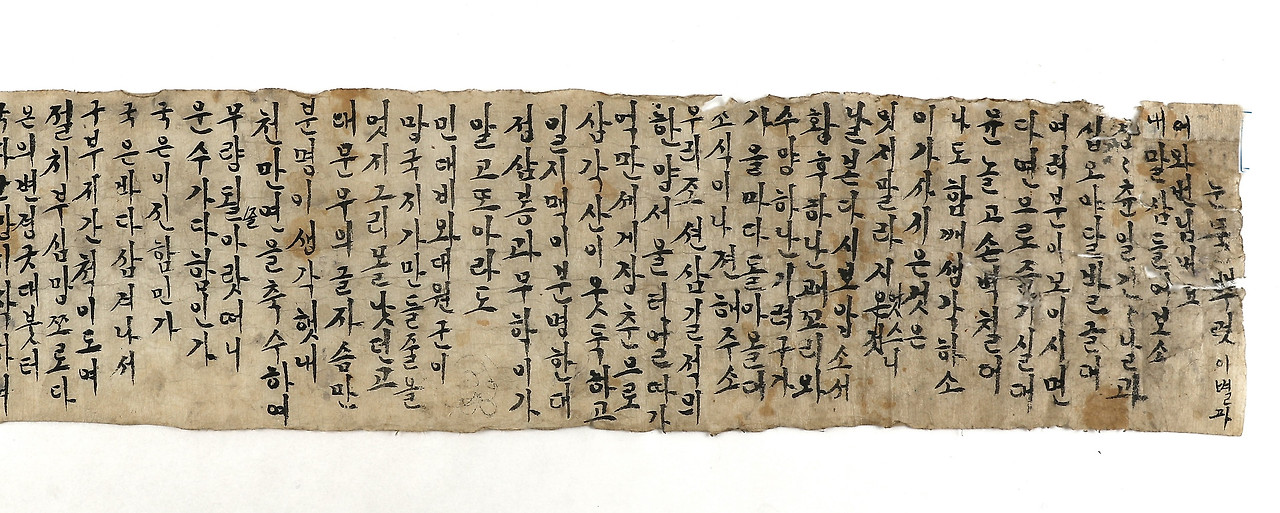 눈물뿌려 이별가
어와벗님네요
내말삼들어보소
정々춘일긴々날과
삼오야달발근대
여러분이모이시면
다면으로즐기실대
윤놀고손벽칠여
나도함깨생각하소
이가사지은것은
잇서팔라지은것
앗스니
날본다시보압소서
황후하난괴꼬리와
수양하나기려구가
가울마다돌아올대
소식이나전해주소
우리조션삼기적의
한양서울터얼따가
억만세게장춘으로
삼각산이웃둑하고
일지맥이분명한대
정삼봉과무학이가
말고뜨아라도
민대비와대원군이
망국지가만들줄을
엇지그리몰낫던고
애문무의글자슴만
분명이생각헛내
천만연을축수하여
무량될줄아랏더니
운수가다함인가
국은이진함민가
국은바다삼겨나서
구부지간천이도여
절치부심망쪼로다
은의변경굿대붓터